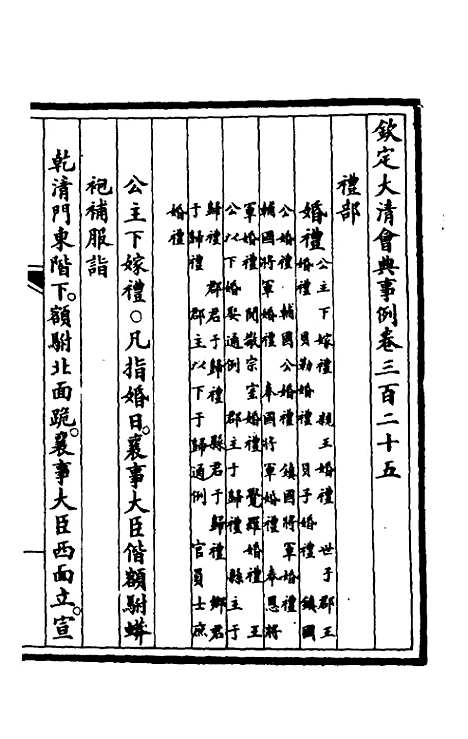 欽定大清會典事例卷三百二十五
禮部
婚禮 公主下嫁禮 親王婚禮 世子郡王
婚禮 貝勒婚禮 貝子婚禮 鎮國
公婚禮 輔國公婚禮 鎮國將軍婚禮
輔國將軍婚禮 奉國將軍婚禮 奉恩將
軍婚禮 閒散宗室婚禮 覺羅婚禮 王
公以下婚娶通例 郡主于歸禮 縣主于
歸禮 郡君于歸禮 縣君于歸禮 鄉君
于歸禮 郡主以下于歸通例 官員士庶
婚禮
公主下嫁禮○凡指婚日。襄事大臣偕額駙蟒
袍補服詣
乾清門東階下。額駙北面跪。襄事大臣西面立。宣